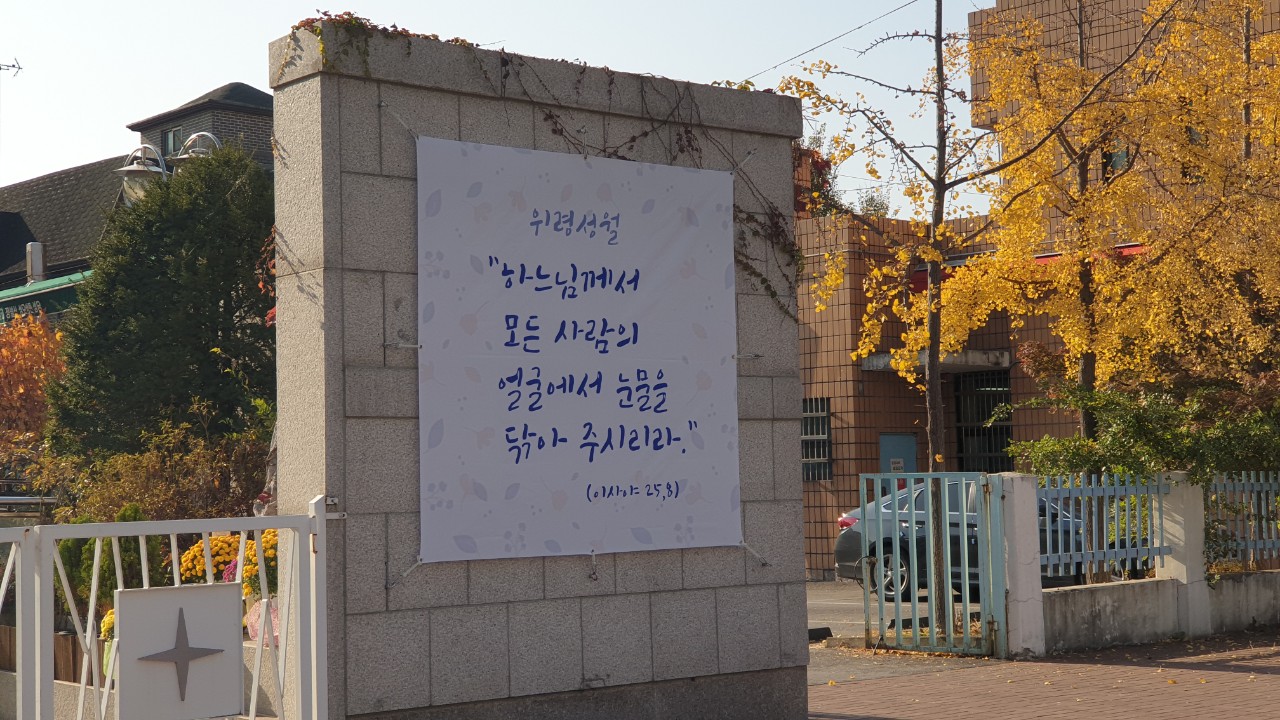 위령성월
"하느님께서
모든 사람의
얼굴에서 눈물을
닦아 주시리라."
(이사야 25,8)